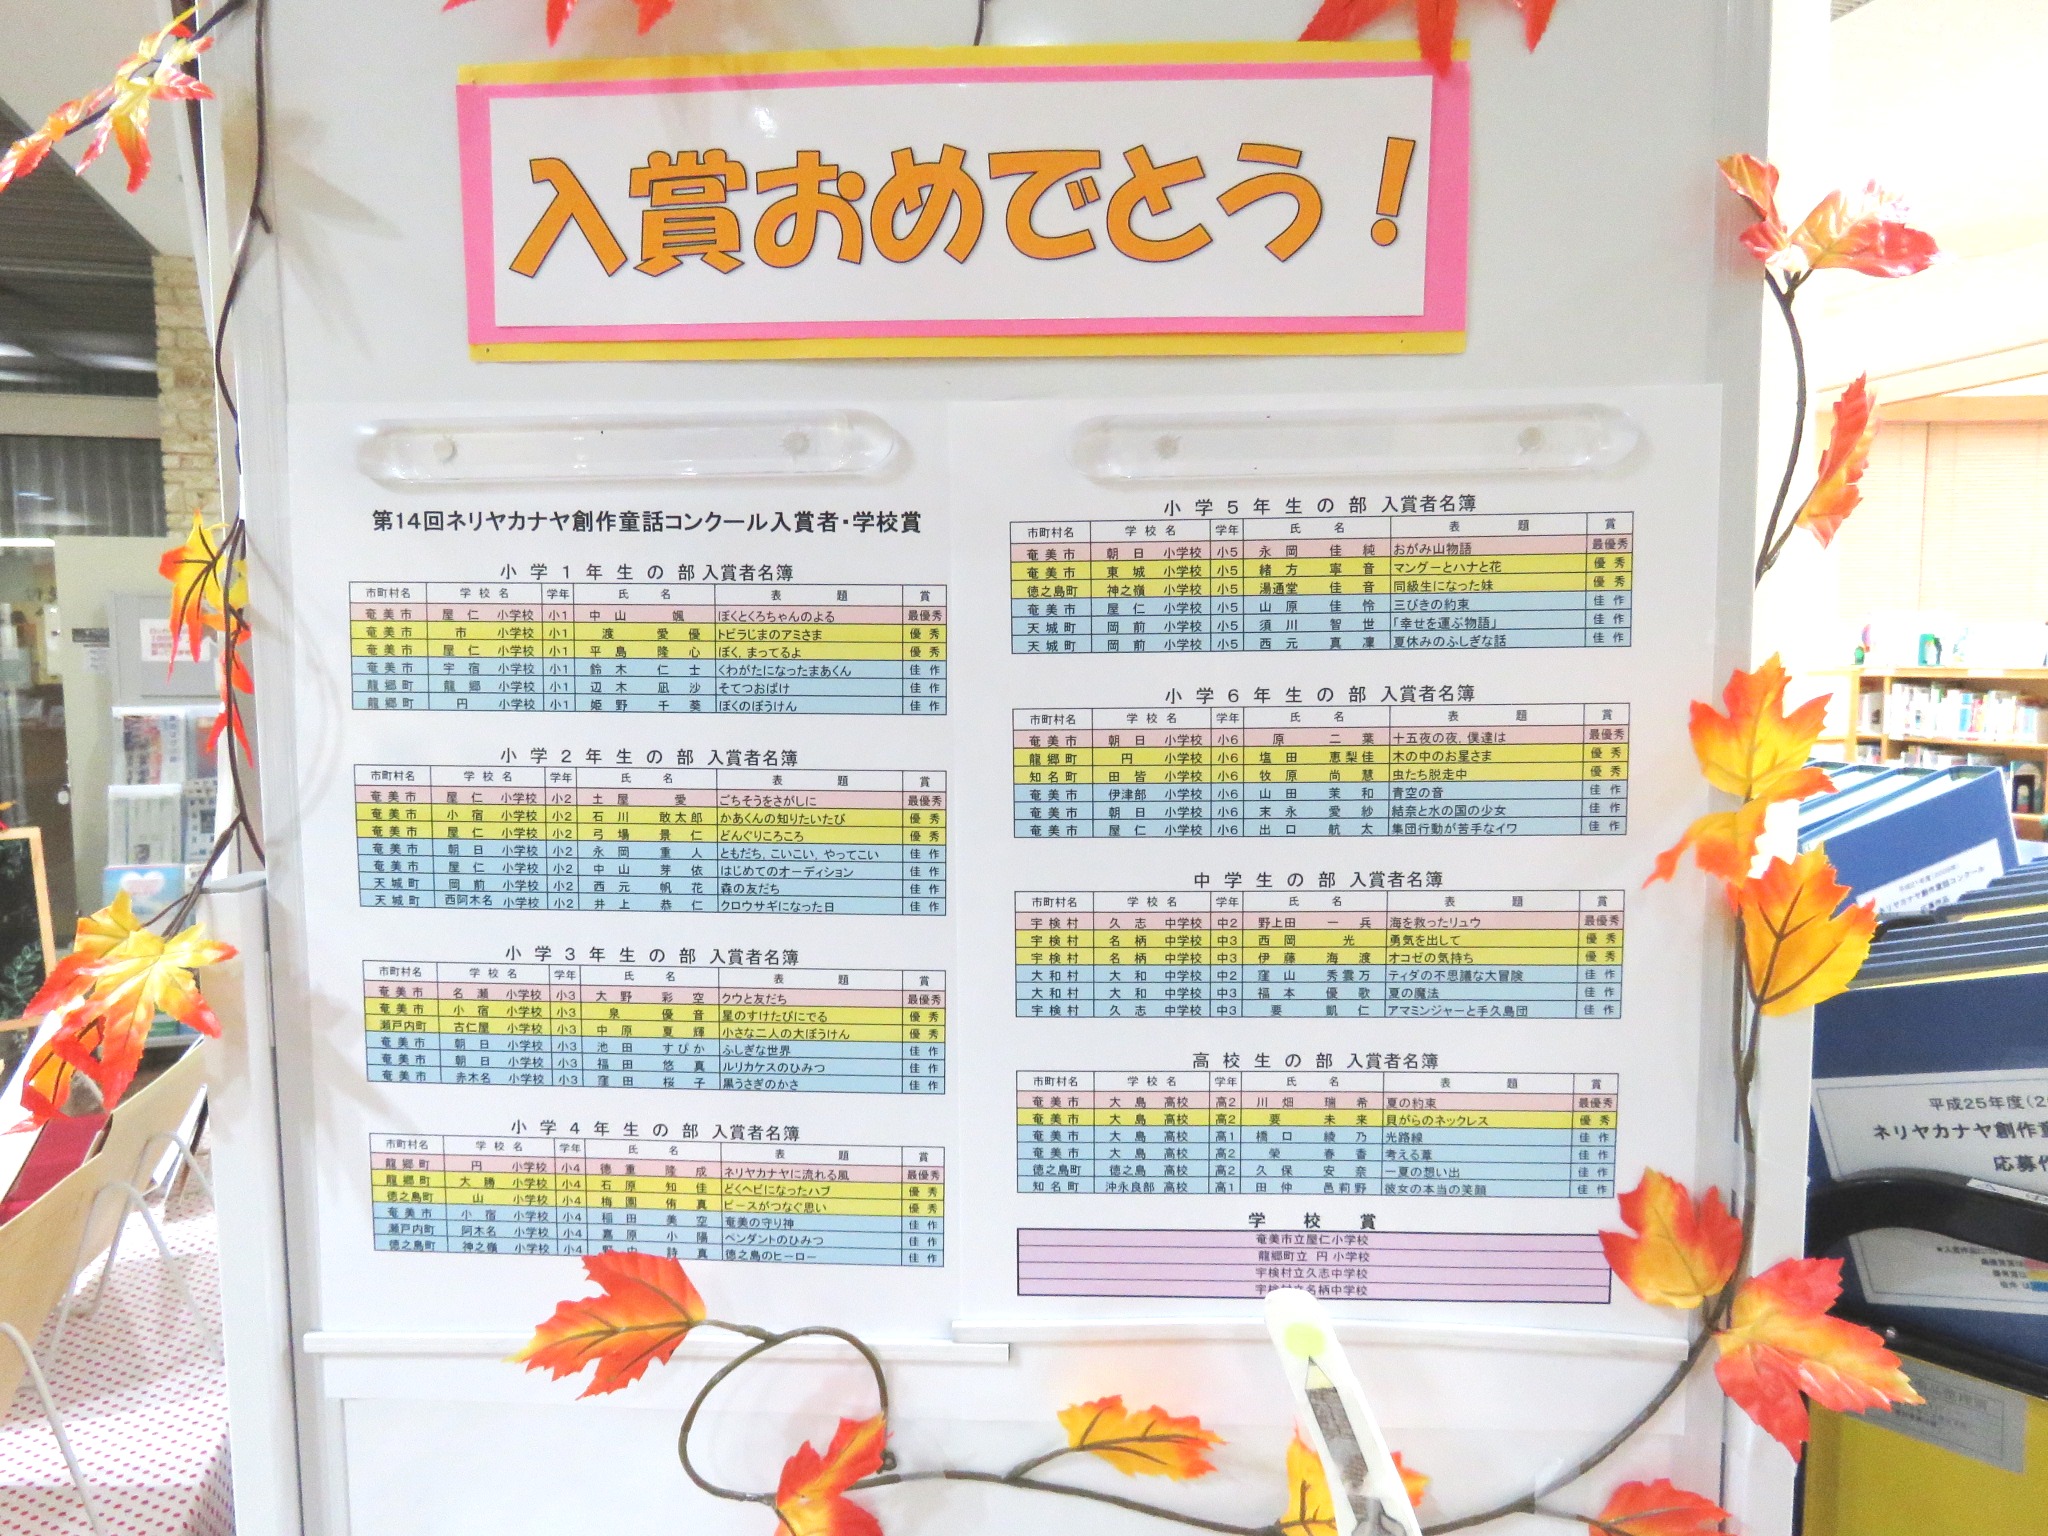 入賞おめでとう！
第14回ネリヤカナヤ創作童話コンクール入賞者・学校賞
小学1年生の部 入賞者名簿
市町村名 学校名 学年 氏名 表題 賞
奄美市 屋仁 小学校 小1 中山 颯 ぼくとくろちゃんのよる 最優秀
奄美市 市 小学校 小1 渡 愛優 トビラじまのアミさま 優秀
奄美市 屋仁 小学校 小1 平島 隆心 ぼく、まってるよ 優秀
奄美市 宇宿 小学校 小1 鈴木 仁士 くわがたになったまあくん 佳作
龍郷町 龍郷 小学校 小1 辺木 凪沙 そてつおばけ 佳作
龍郷町 円 小学校 小1 姫野 千葵 ぼくのぼうけん 佳作
小学2年生の部 入賞者名簿
市町村名 学校名 学年 氏名 表題 賞
奄美市 屋仁 小学校 小2 土屋 愛 ごちそうをさがしに 最優秀
奄美市 小宿 小学校 小2 石川 敢太郎 かあくんの知りたいたび 優秀
奄美市 屋仁 小学校 小2 弓場 景仁 どんぐりころころ 優秀
奄美市 朝日 小学校 小2 永岡 重人 ともだち、こいこい、やってこい 佳作
奄美市 屋仁 小学校 小2 中山 芽依 はじめてのオーディション 佳作
天城町 岡前 小学校 小2 西元 帆花 森の友だち 佳作
天城町 西阿木名 小学校 小2 井上 恭仁 クロウサギになった日 佳作
小学3年生の部 入賞者名簿
市町村名 学校名 学年 氏名 表題 賞
奄美市 名瀬 小学校 小3 大野 彩空 クウと友だち 最優秀
奄美市 小宿 小学校 小3 泉 優音 星のすけたびにでる 優秀
瀬戸内町 古仁屋 小学校 小3 中原 夏輝 小さな二人の大ぼうけん 優秀
奄美市 朝日 小学校 小3 池田 すぴか ふしぎな世界 佳作
奄美市 朝日 小学校 小3 福田 悠真 ルリカケスのひみつ 佳作
奄美市 赤木名 小学校 小3 窪田 桜子 黒うさぎのかさ 佳作
小学4年生の部 入賞者名簿
市町村名 学校名 学年 氏名 表題 賞
龍郷町 円 小学校 小4 徳重 隆成 ネリヤカナヤに流れる風 最優秀
龍郷町 大勝 小学校 小4 石原 知佳 どくヘビになったハブ 優秀
徳之島町 山 小学校 小4 梅園 侑真 ピースがつなぐ思い 優秀
奄美市 小宿 小学校 小4 稲田 美空 奄美の守り神 佳作
瀬戸内町 阿木名 小学校 小4 嘉原 小陽 ペンダントのひみつ 佳作
徳之島町 神之嶺 小学校 小4 詩真 徳之島のヒーロー 佳作
小学5年生の部 入賞者名簿
市町村名 学校名 学年 氏名 表題 賞
奄美市 朝日 小学校 小5 永岡 佳純 おがみ山物語 最優秀
奄美市 東城 小学校 小5 緒方 寧音 マングーとハナと花 優秀
徳之島町 神之嶺 小学校 小5 湯通堂 佳音 同級生になった妹 優秀
奄美市 屋仁 小学校 小5 山原 佳怜 三びきの約束 佳作
天城町 岡前 小学校 小5 須川 智世 「幸せを運ぶ物語」 佳作
天城町 岡前 小学校 小5 西元 真凜 夏休みのふしぎな話 佳作
小学6年生の部 入賞者名簿
市町村名 学校名 学年 氏名 表題 賞
奄美市 朝日 小学校 小6 原 二葉 十五夜の夜、僕達は 最優秀
龍郷町 円 小学校 小6 塩田 恵梨佳 木の中のお星さま 優秀
知名町 田皆 小学校 小6 牧原 尚慧 虫たち脱走中 優秀
奄美市 伊津部 小学校 小6 山田 茉和 青空の音 佳作
奄美市 朝日 小学校 小6 末永 愛紗 結奈と水の国の少女 佳作
奄美市 屋仁 小学校 小6 出口 航太 集団行動が苦手なイワ 佳作
中学生の部 入賞者名簿
市町村名 学校名 学年 氏名 表題 賞
宇検村 久志 中学校 中2 野上田 一兵 海を救ったリュウ 最優秀
宇検村 名柄 中学校 中3 西岡 光 勇気を出して 優秀
宇検村 名柄 中学校 中3 伊藤 海渡 オコゼの気持ち 優秀
大和村 大和 中学校 中2 窪山 秀雲万 ティダの不思議な大冒険 佳作
大和村 大和 中学校 中3 福本 優歌 夏の魔法 佳作
宇検村 久志 中学校 中3 要 凱仁 アマミンジャーと手久島団 佳作
高校生の部 入賞者名簿
市町村名 学校名 学年 氏名 表題 賞
奄美市 大島 高校 高2 川畑 瑞希 夏の約束 最優秀
奄美市 大島 高校 高2 要 未来 貝がらのネックレス 優秀
奄美市 大島 高校 高1 橋口 綾乃 光路線 佳作
奄美市 大島 高校 高2 榮 春香 考える葦 佳作
徳之島町 徳之島 高校 高2 久保 安奈 一夏の想い出 佳作
知名町 沖永良部 高校 高1 田仲 邑莉野 彼女の本当の笑顔 佳作
学校賞
奄美市立屋仁小学校
龍郷町立 円 小学校
宇検村立久志中学校
宇検村立名柄中学校
平成21年度(2009年)
ネリヤカナヤ創作童話コンクール
平成25年度(2
ネリヤカナヤ創作童
応募作